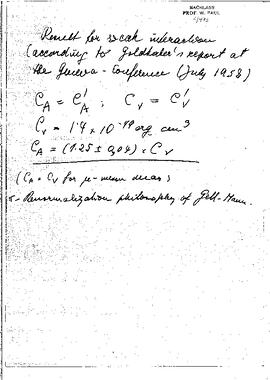 NACHLASS
PROF. W. PAULI
Result for weak interaction
(according to Goldhaber's report at
the Geneva-Conference (July 1958)
C_A = C'_A ; C_V = C'_V
C_V = 1.4 × 10^-49 erg cm^3
C_A = (1.25 ± 0,04) × C_V
(C_A = C_V for μ-meson decay)
Renormalization philosophy of Gell-Mann.